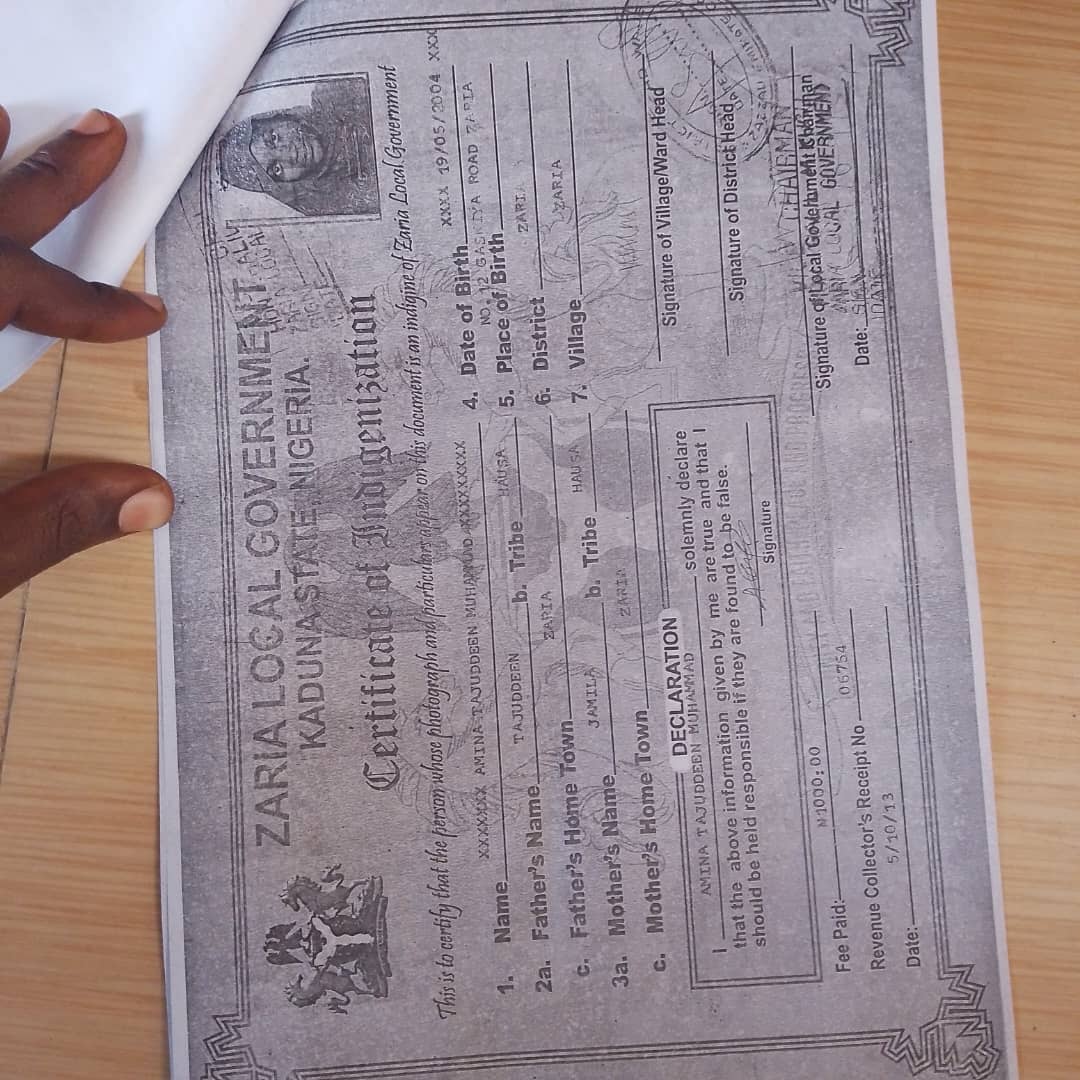 ZARIA LOCAL GOVERNMENT
KADUNA STATE, NIGERIA.
Certificate of Indigenization
This is to certify that the person whose photograph and particulars appear on this document is an indigine of Zaria Local Government
1. Name XXXXXXX AMINA TAJUDDEEN MUHAMMAD XXXXXXXX
2a. Father's Name TAJUDDEEN b. Tribe HAUSA
c. Father's Home Town ZARIA
3a. Mother's Name JAMILA b. Tribe HAUSA
c. Mother's Home Town ZARIA
4. Date of Birth XXXX 19/05/2004 XXX
NO. 12 GASKIYA ROAD ZARIA
5. Place of Birth ZARIA
6. District ZARIA
7. Village
DECLARATION
I AMINA TAJUDDEEN MUHAMMAD solemnly declare
that the above information given by me are true and that I
should be held responsible if they are found to be false.
Signature
Fee Paid: N1000:00
Revenue Collector's Receipt No 06754
Date: 5/10/13
Signature of Village/Ward Head
Signature of District Head
CHAIRMAN
Signature of Local Government Chairman
ZARIA LOCAL GOVERNMENT
Date: